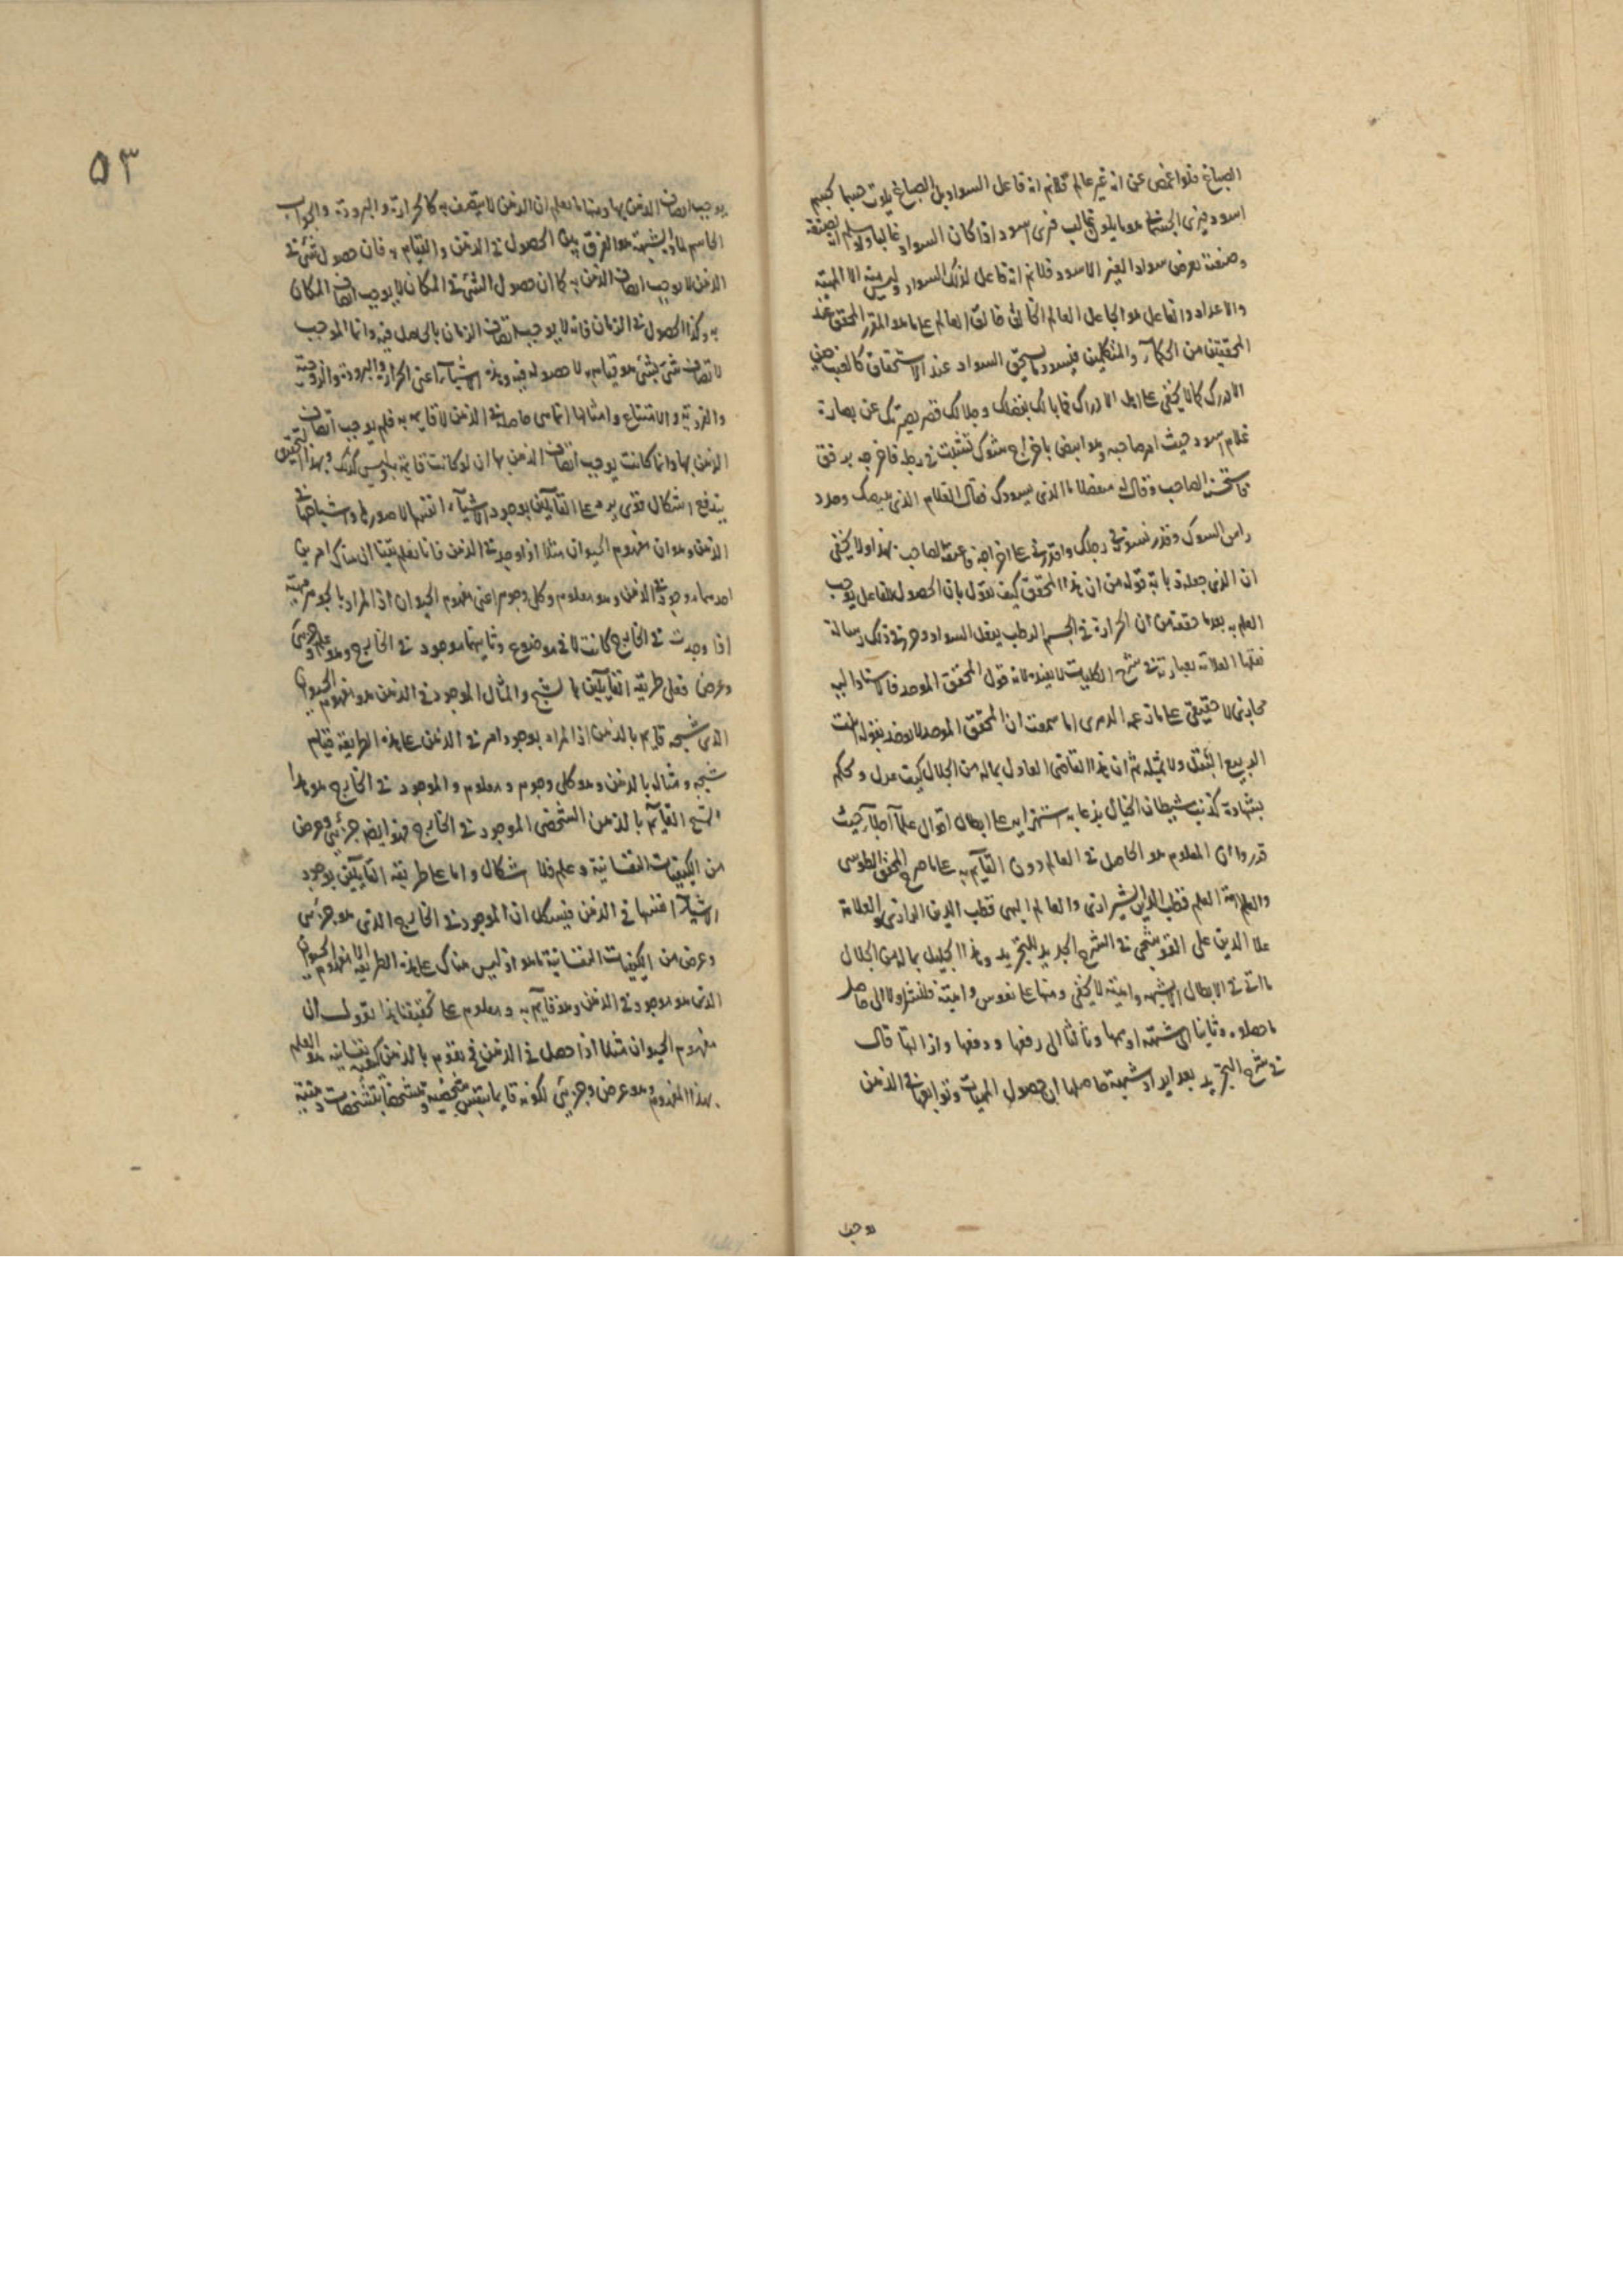 الصباغ فلو اغمض عن انه غير عالم فلانم انه فاعل السواد بل الصباغ يلوث جسما بجسم
اسود فيرى الجسم على هو ما يلون غالب فيرى اسود اذا كان السواد غالبا ولو سلم ان لصبغه
وصنعته تعرض سواد الغير الاسود فلانم انه فاعل لذلك السواد وليس منه الا التهيئة
والاعداد والفاعل هو الجاعل العالم الخالق خالق العالم على ما هو المقرر المحقق عند
المحققين من الحكماء والمتكلمين فيسود ما يستحق السواد عند الاستحقاق
الادرك كما لا يخفى على اهل الادراك فما بالك بفضلك وجلالك قصر بصيرتك عن بصارة
غلام اسود حيث امر صاحبه وهو ابيض باخراج شوك تشبثت في رجله فاخرجه برفق
فاستحسنه الصاحب وقال له مفضلا ما الذي يسودك فقال الغلام الذي بيضك وحدد
راس الشوك وقدر نشوته في رجلك واقدرني على اخراجه فاعتقه الصاحب بهذا ولا يخفى
ان الذي جعله ذبابة قوله من ان هذا المحقق كيف يقول بان الحصول للفاعل يوجب
العلم به بعد ما حققه من ان الحرارة في الجسم الرطب يفعل السواد وحرر في ذلك رسالة
نقلها العلامة بعبارته في شرح الكليات لا يفيد لانه قول المحقق الموحد فالاسناد اليه
مجازي لا حقيقي على ما زعمه الدهري اما سمعت ان المحقق الموحد لا يؤخذ بقوله انبت
الربيع البقل ولا بمثله ثم ان هذا القاضي العادل بماله من الجلال كيف عدل وحكم
بشهادة كذب شيطان الخيال بذعابه استهزاء به على ابطال اقوال علماء اجلاء حيث
قرروا ان المعلوم هو الحاصل في العالم دون القائم به على ما صرح المحقق الطوسي
والعلامة العلم قطب الدين الشيرازي والعالم الهمي قطب الدين الرازي والعلامة
علا الدين على القوشجي في الشرح الجديد للتجريد وهذا الجليل بماله من الجلال
ما اتى في الابطال الا بشبهة واهية لا يخفى وهنها على نفوس واهية فلنشر اولا الى حاصل
ما حصلوه وثانيا الى شبهة اوهمها وثالثا الى رفعها ودفعها وازالتها قال
في شرح التجريد بعد ايراد شبهة حاصلها ان حصول المهيات وتوابعها في الذهن
يوجب
٥٣
يوجب اتصاف الذهن بها وبنا ما نعلم ان الذهن لا يتصف به كالحرارة والبرودة والجواب
الحاسم لمادة الشبهة هو الفرق بين الحصول في الذهن والقيام به فان حصول شئ في
الذهن لا يوجب اتصاف الذهن به كما ان حصول الشئ في المكان لا يوجب اتصاف المكان
به وكذا الحصول في الزمان فانه لا يوجب اتصاف الزمان بالحاصل فيه وانما الموجب
لاتصاف شئ بشئ هو قيامه به لا حصوله فيه وهذه الاشياء اعني الحرارة والبرودة والزوجية
والفردية والامتناع وامثالها انما هي حاصلة في الذهن لا قايمة به فلم يوجب اتصاف
الذهن بها وانما كانت يوجب اتصاف الذهن بها ان لو كانت قايمة به وليس كذلك وبهذا التحقيق
يندفع اشكال قوي يرد على القائلين بوجود الاشياء انفسها لا صورها واشباحها في
الذهن وهو ان مفهوم الحيوان مثلا اذا وجد في الذهن فانا نعلم يقينا ان هناك امرين
احدهما موجود في الذهن وهو معلوم وكلي وجوهر اعني مفهوم الحيوان اذ المراد بالجوهر مهية
اذا وجدت في الخارج كانت لا في موضوع وثانيهما موجود في الخارج وهو علم وجزئي
وعرض فعلى طريقة القائلين بالشبح والمثال الموجود في الذهن هو مفهوم الحيوان
الذي شبحه قايم بالذهن اذ المراد بوجود امر في الذهن على هذه الطريقة قيام
شبحه ومثاله بالذهن وهو كلي وجوهر ومعلوم والموجود في الخارج هو هذا
الشبح القائم بالذهن الشخصي الموجود في الخارج فهو ايضا جزئي وعرض
من الكيفيات النفسانية وعلم فلا اشكال واما على طريقة القائلين بوجود
الاشياء انفسها في الذهن فيشكل ان الموجود في الخارج الذي هو جزئي
وعرض من الكيفيات النفسانية ما هو اذ ليس هناك على هذه الطريقة الا مفهوم الحيوان
الذي هو موجود في الذهن وهو قائم به ومعلوم على تحقيقنا هذا نقول ان
مفهوم الحيوان مثلا اذا حصل في الذهن فح يقوم بالذهن كيفية نفسانية هو العلم
بهذا المفهوم وهو عرض وجزئي لكونه قايما بنفس شخصية ومتشخصا بتشخصات ذهنية